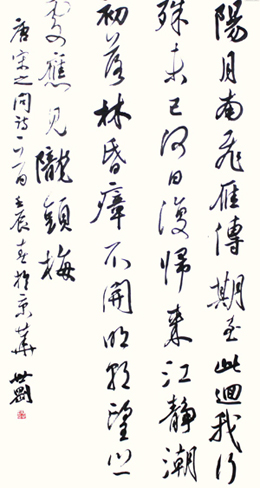 陽月南飛雁傳期至此迴我行
殊未已何日復歸來江靜潮
初落林昏瘴不開明朝望鄉
處應見隴頭梅
唐宋之問詩一首壬辰春於京華世剛